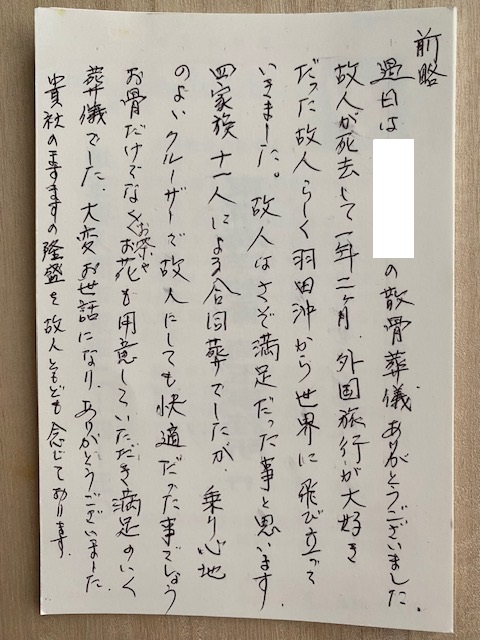 前略
過日は
の散骨葬儀ありがとうございました.
故人が死去して一年二ヶ月、外国旅行が大好き
だった故人らしく羽田沖から世界に飛び立って
いきました。故人はさぞ満足だった事と思います.
四家族十一人による合同葬でしたが、乗り心地
のよいクルーザーで故人にしても快適だった事でしょう
お骨だけでなくお茶やお花も用意していただき満足のいく
葬儀でした、大変お世話になり、ありがとうございました.
貴社のますますの隆盛を故人ともども念じております.